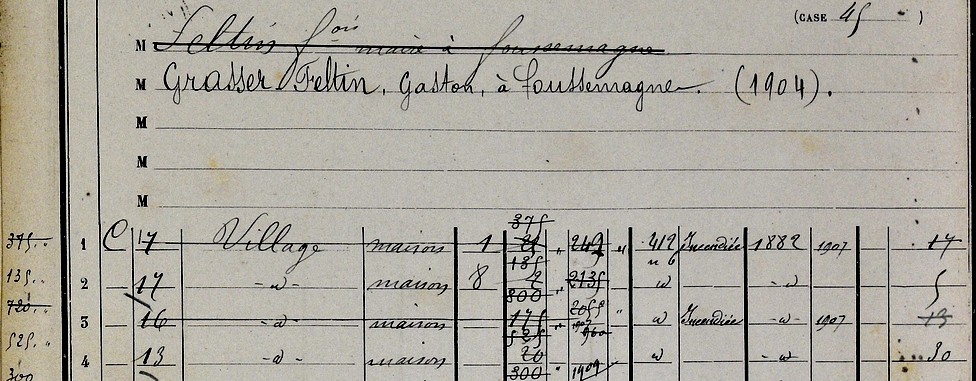 (CASE 45 )
M Feltin Fois maire à Foussemagne
M Grasser Feltin, Gaston, à Foussemagne. (1904).
M
M
M
375
375 1 C 17 Village maison 1 21 " 249 " 412 Incendiée 1882 1907 17
n 6
185
135 2 17 -d- maison 8 2135 d -d- 5
800
720 3 16 -d- maison 175 d Incendiée -d- 1907 13
525
525 4 13 -d- maison 20 d -d- 30
300 300 1909